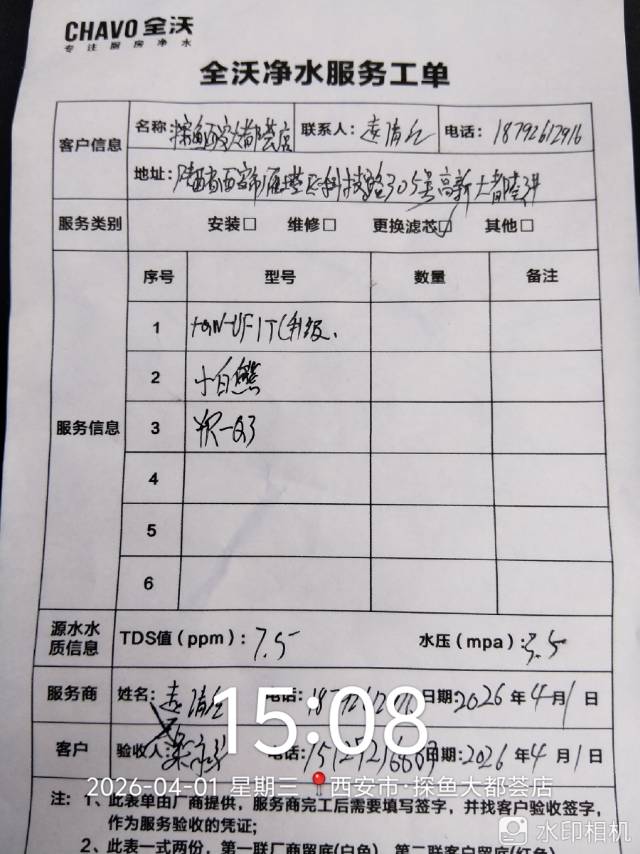 CHAVO 全沃
专注厨房净水
全沃净水服务工单
客户信息
名称: 探鱼西安大都荟店 联系人: 电话: 18792612916
地址: 陕西省西安市雁塔区科技路305号高新大都荟
服务类别 安装□ 维修□ 更换滤芯☑ 其他□
服务信息
序号 型号 数量 备注
1 升级
2 小白熊
3
4
5
6
源水水质信息 TDS值(ppm): 7.5 水压(mpa): 3.5
服务商 姓名: 电话: 日期: 2026年4月1日
客户 验收人 电话: 日期: 2026年4月1日
15:08
2026-04-01 星期三 西安市·探鱼大都荟店
注: 1、此表单由厂商提供，服务商完工后需要填写签字，并找客户验收签字，
作为服务验收的凭证;
2、此表一式两份，第一联厂商留底(白色)，第二联客户留底(红色)
水印相机